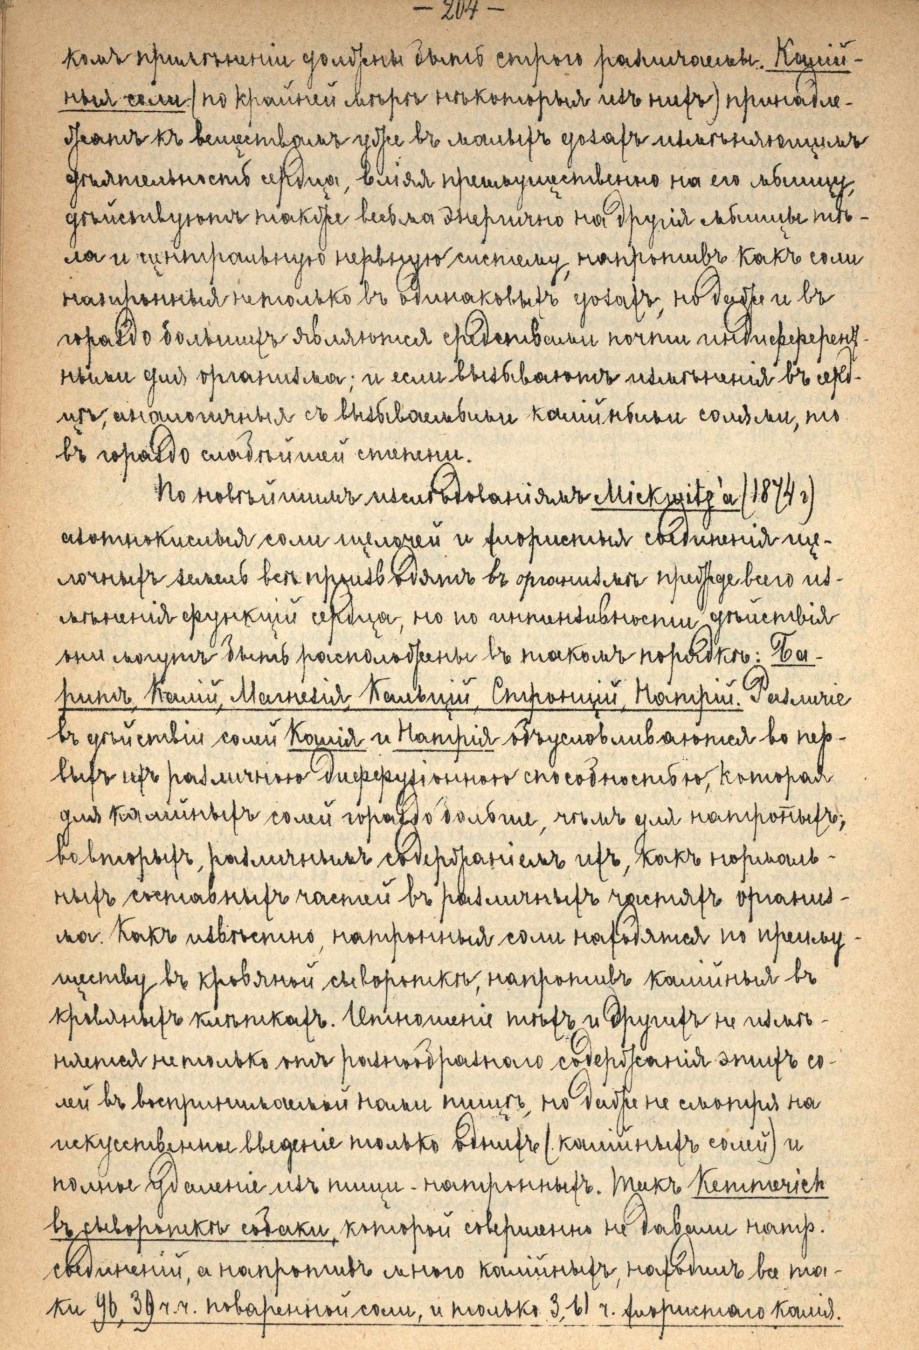 — 204 —
комъ примѣненіи должны быть строго различаемы. Калій-
ныя соли (по крайней мѣрѣ нѣкоторыя изъ нихъ) принадле-
жатъ къ веществамъ уже въ малыхъ дозахъ измѣняющимъ
дѣятельность сердца, вліяя преимущественно на его мышцу,
дѣйствуютъ также весьма энергично на другія мышцы тѣ-
ла и центральную нервную систему, напротивъ какъ соли
натронныя нетолько въ одинаковыхъ дозахъ, но даже и въ
гораздо большихъ являются средствами почти индифферент-
ными для организма; и если вызываютъ измѣненія въ серд-
цѣ, аналогичныя съ вызываемыми калійными солями, то
въ гораздо слабѣйшей степени.
По новѣйшимъ изслѣдованіямъ Mickwitz'a (1874 г)
азотнокислыя соли щелочей и хлористыя соединенія ще-
лочныхъ земель всѣ производятъ въ организмѣ прежде всего из-
мѣненія функцій сердца, но по интензивности дѣйствія
они могутъ быть расположены въ такомъ порядкѣ: Ба-
ритъ, Калій, Магнезія, Кальцій, Стронцій, Натрій. Различіе
въ дѣйствіи солей Калія и Натрія обусловливаются во пер-
выхъ ихъ различною диффузіонною способностью, которая
для калійныхъ солей гораздо больше, чѣмъ для натронныхъ;
вовторыхъ, различнымъ содержаніемъ ихъ, какъ нормаль-
ныхъ составныхъ частей въ различныхъ частяхъ организ-
ма. Какъ извѣстно, натронныя соли находятся по преиму-
ществу въ кровяной сывороткѣ, напротивъ калійныя въ
кровяныхъ клѣткахъ. И отношеніе тѣхъ и другихъ не измѣ-
няется нетолько отъ разнообразнаго содержанія этихъ со-
лей въ воспринимаемой нами пищѣ, но даже не смотря на
искусственное введеніе только однихъ (калійныхъ солей) и
полное удаленіе изъ пищи - натронныхъ. Такъ Kemmerich
въ сывороткѣ собаки, которой совершенно не давали натр.
соединеній, а напротивъ много калійныхъ, находилъ все та-
ки 96,39 ч.ч. поваренной соли, и только 3,61 ч. хлористаго калія.